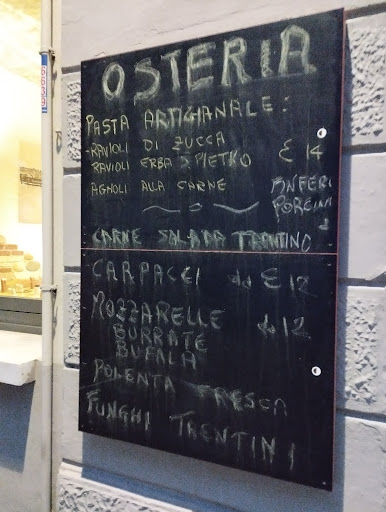 OSTERIA
PASTA ARTIGIANALE:
-RAVIOLI DI ZUCCA
RAVIOLI ERBA S PIETRO € 14
AGNOLI ALLA CARNE
CARNE SALADA TRENTINO
CARPACCI da € 12
MOZZARELLE da 12
BURRATE
BUFALA
POLENTA FRESCA
FUNGHI TRENTINI